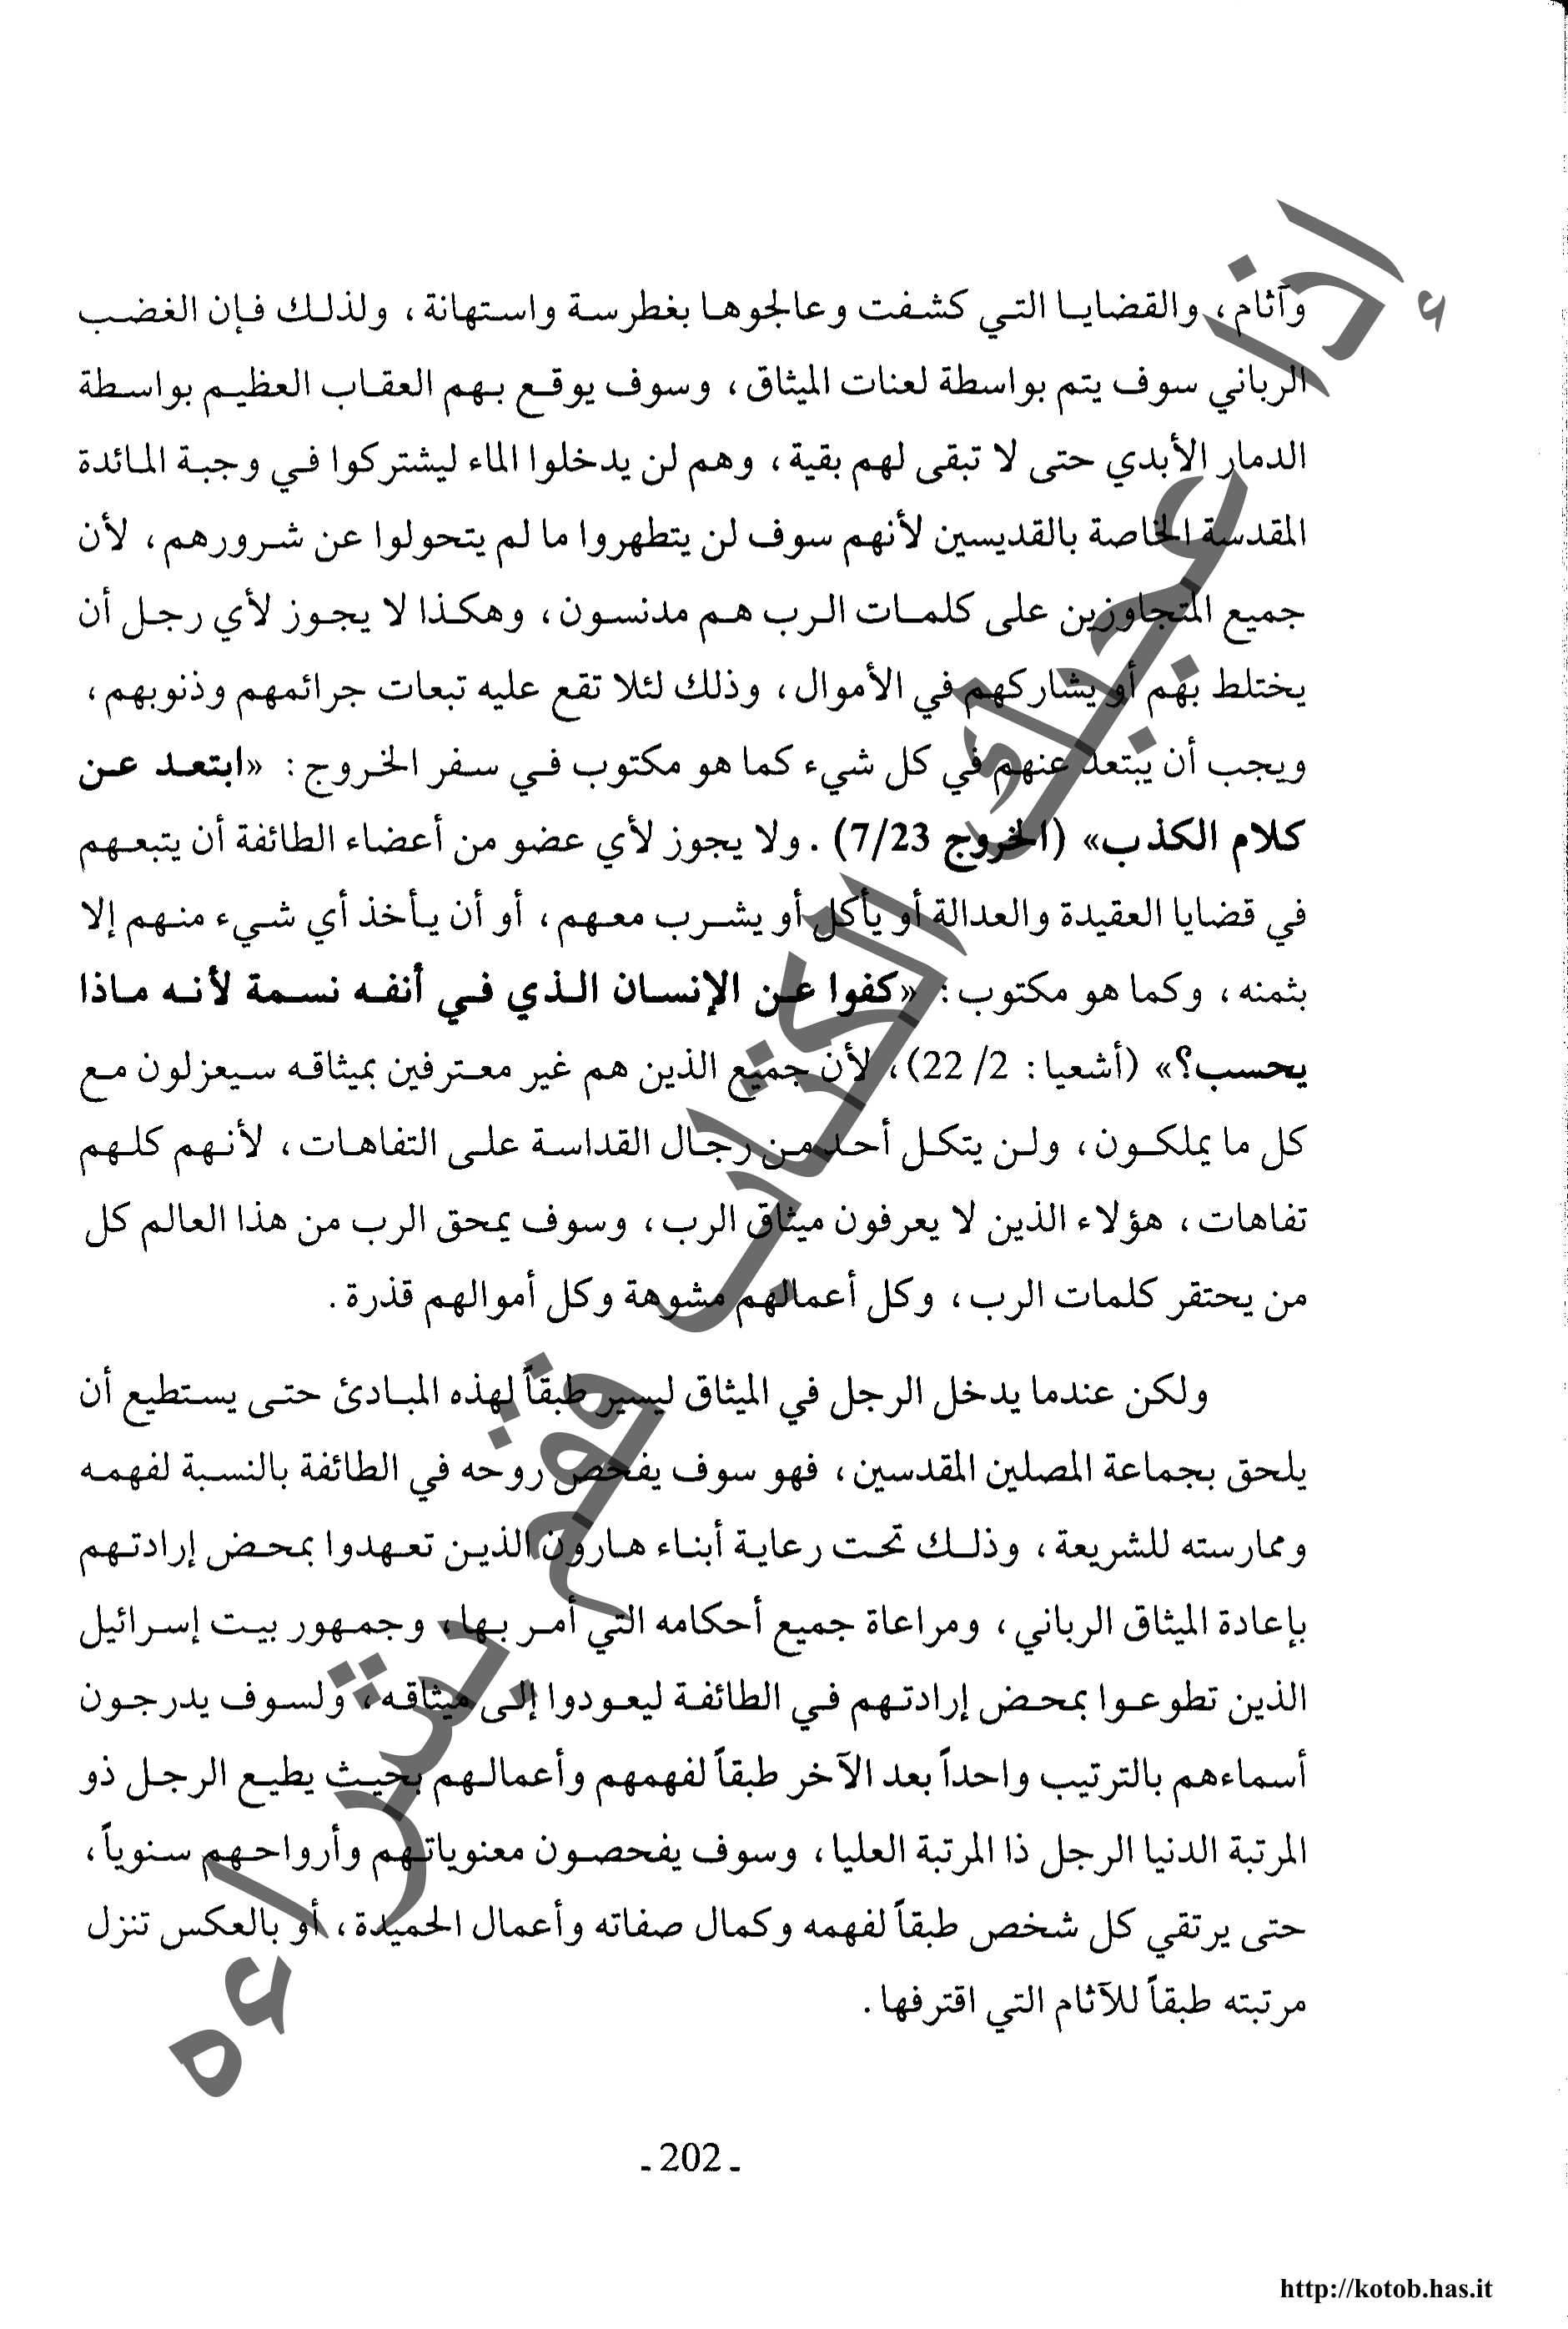 وآثام، والقضايا التي كشفت وعالجوها بغطرسة واستهانة، ولذلك فإن الغضب
الرباني سوف يتم بواسطة لعنات الميثاق، وسوف يوقع بهم العقاب العظيم بواسطة
الدمار الأبدي حتى لا تبقى لهم بقية، وهم لن يدخلوا الماء ليشتركوا في وجبة المائدة
المقدسة الخاصة بالقديسين لأنهم سوف لن يتطهروا ما لم يتحولوا عن شرورهم، لأن
جميع المتجاوزين على كلمات الرب هم مدنسون، وهكذا لا يجوز لأي رجل أن
يختلط بهم أو يشاركهم في الأموال، وذلك لئلا تقع عليه تبعات جرائمهم وذنوبهم،
ويجب أن يبتعد عنهم في كل شيء كما هو مكتوب في سفر الخروج: «ابتعد عن
كلام الكذب» (الخروج 7/23). ولا يجوز لأي عضو من أعضاء الطائفة أن يتبعهم
في قضايا العقيدة والعدالة أو يأكل أو يشرب معهم، أو أن يأخذ أي شيء منهم إلا
بثمنه، وكما هو مكتوب: «كفوا عن الإنسان الذي في أنفه نسمة لأنه ماذا
يحسب؟» (أشعيا: 2/ 22)، لأن جميع الذين هم غير معترفين بميثاقه سيعزلون مع
كل ما يملكون، ولن يتكل أحد من رجال القداسة على التفاهات، لأنهم كلهم
تفاهات، هؤلاء الذين لا يعرفون ميثاق الرب، وسوف يمحق الرب من هذا العالم كل
من يحتقر كلمات الرب، وكل أعمالهم مشوهة وكل أموالهم قذرة.
ولكن عندما يدخل الرجل في الميثاق ليسير طبقاً لهذه المبادئ حتى يستطيع أن
يلحق بجماعة المصلين المقدسين، فهو سوف يفحص روحه في الطائفة بالنسبة لفهمه
وممارسته للشريعة، وذلك تحت رعاية أبناء هارون الذين تعهدوا بمحض إرادتهم
بإعادة الميثاق الرباني، ومراعاة جميع أحكامه التي أمر بها، وجمهور بيت إسرائيل
الذين تطوعوا بمحض إرادتهم في الطائفة ليعودوا إلى ميثاقه، ولسوف يدرجون
أسماءهم بالترتيب واحداً بعد الآخر طبقاً لفهمهم وأعمالهم بحيث يطيع الرجل ذو
المرتبة الدنيا الرجل ذا المرتبة العليا، وسوف يفحصون معنوياتهم وأرواحهم سنوياً،
حتى يرتقي كل شخص طبقاً لفهمه وكمال صفاته وأعمال الحميدة، أو بالعكس تنزل
مرتبته طبقاً للآثام التي اقترفها.
إذا أعجبك الكتاب فقم بشراءه
- 202 -
http://kotob.has.it